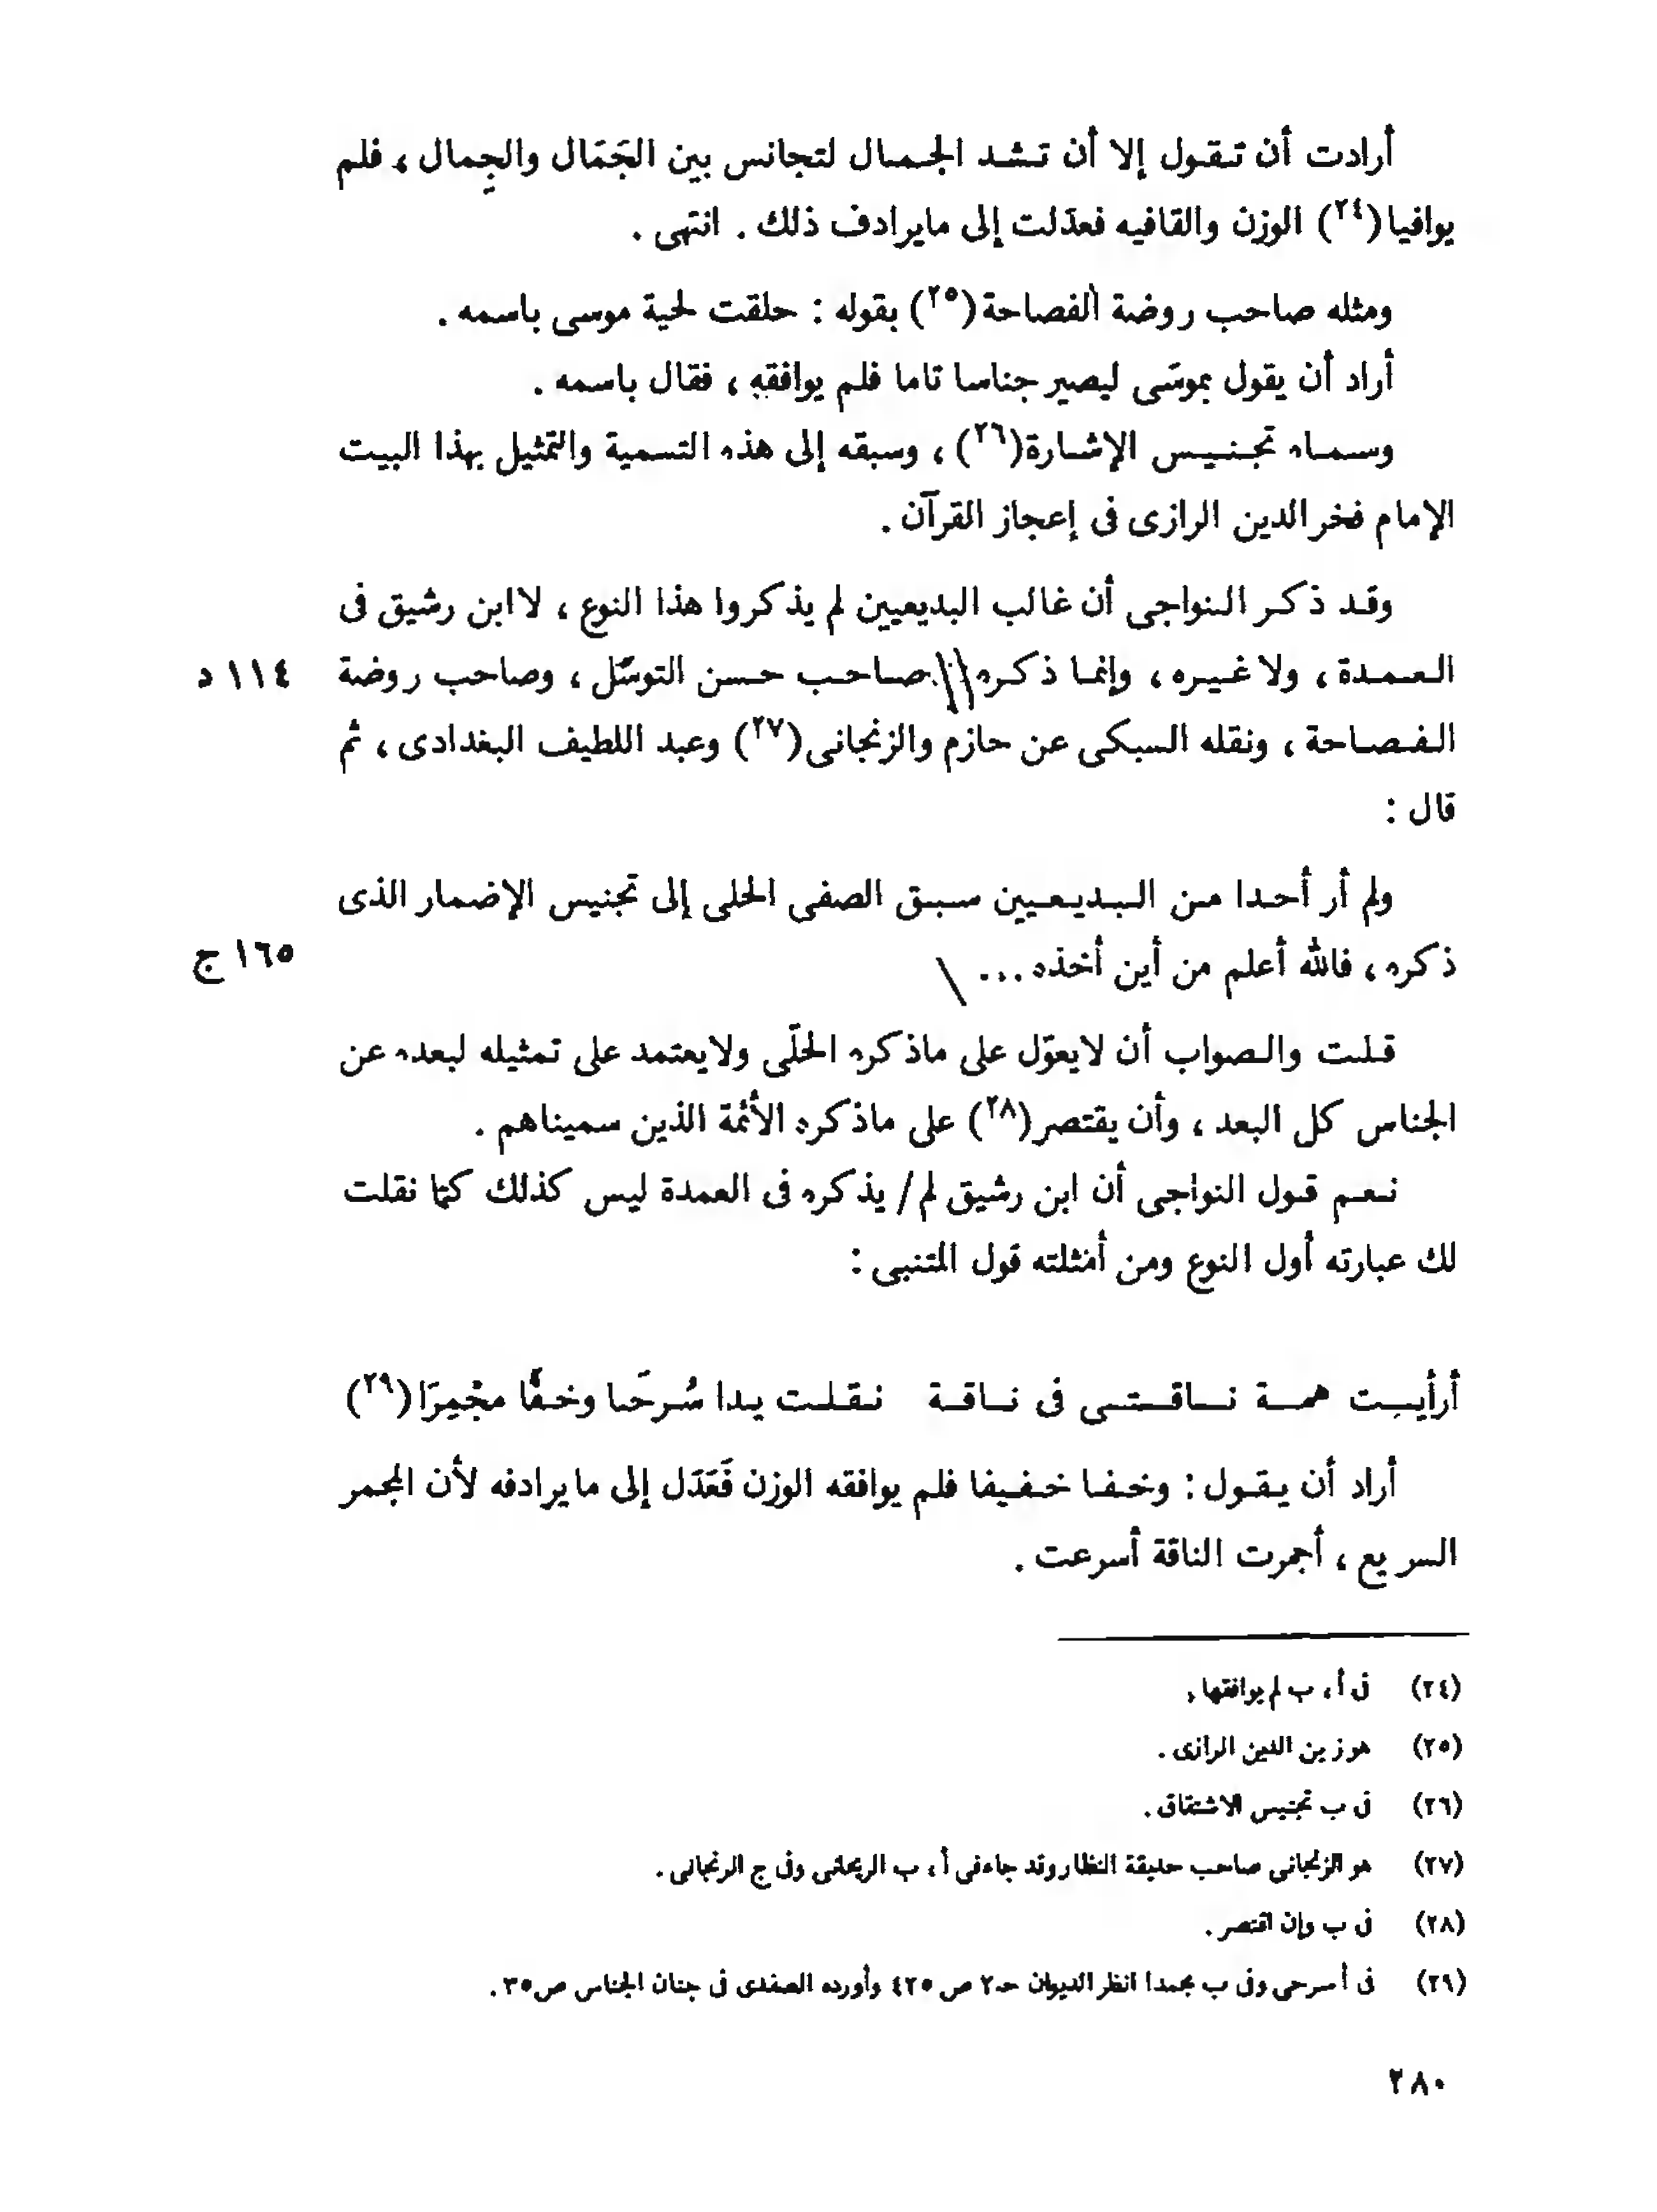 أرادت أن تقول إلا أن تشد الجمال لتجانس بين الجَمَال والجِمال ، فلم
يوافيا(٢٤) الوزن والقافيه فعدَلت إلى مايرادف ذلك . انتهى .
ومثله صاحب روضة الفصاحة(٢٥) بقوله : حلقت لحية موسى باسمه .
أراد أن يقول بموسَى ليصير جناسا تاما فلم يوافقه ، فقال باسمه .
وسماه تجنيس الإشارة(٢٦) ، وسبقه إلى هذه التسمية والتمثيل بهذا البيت
الإمام فخر الدين الرازى فى إعجاز القرآن .
وقد ذكر النواجى أن غالب البديعيين لم يذكروا هذا النوع ، لا ابن رشيق فى
العمدة ، ولا غيره ، وإنما ذكره\\صاحب حسن التوسّل ، وصاحب روضة ١١٤ د
الفصاحة ، ونقله السبكى عن حازم والزنجانى(٢٧) وعبد اللطيف البغدادى ، ثم
قال :
ولم أر أحدا من البديعيين سبق الصفى الحلى إلى تجنيس الإضمار الذى
ذكره ، فالله أعلم من أين أخذه ... \ ١٦٥ ج
قلت والصواب أن لايعوّل على ماذكره الحلّى ولايعتمد على تمثيله لبعده عن
الجناس كل البعد ، وأن يقتصر(٢٨) على ماذكره الأئمة الذين سميناهم .
نعم قول النواجى أن ابن رشيق لم/ يذكره فى العمدة ليس كذلك كما نقلت
لك عبارته أول النوع ومن أمثلته قول المتنبى :
أرأيت همة ناقتى فى ناقة نقلت يدا سُرحَا وخفًّا مجْمِرَا(٢٩)
أراد أن يقول : وخفا خفيفا فلم يوافقه الوزن فَعَدَل إلى ما يرادفه لأن المجمر
السريع ، أجمرت الناقة أسرعت .
(٢٤) فى أ ، ب لم يوافقها .
(٢٥) هو زين الدين الرازى .
(٢٦) فى ب تجنيس الاشتقاق .
(٢٧) هو الزنجانى صاحب حديقة النظار وقد جاء فى أ ، ب الريحانى وفى ج الرنجانى .
(٢٨) فى ب وإن اقتصر .
(٢٩) فى أ سرحى وفى ب مجمدا انظر الديوان حـ٢ ص ٤٢٥ وأورده الصفدى فى جنان الجناس ص٣٥ .
٢٨٠